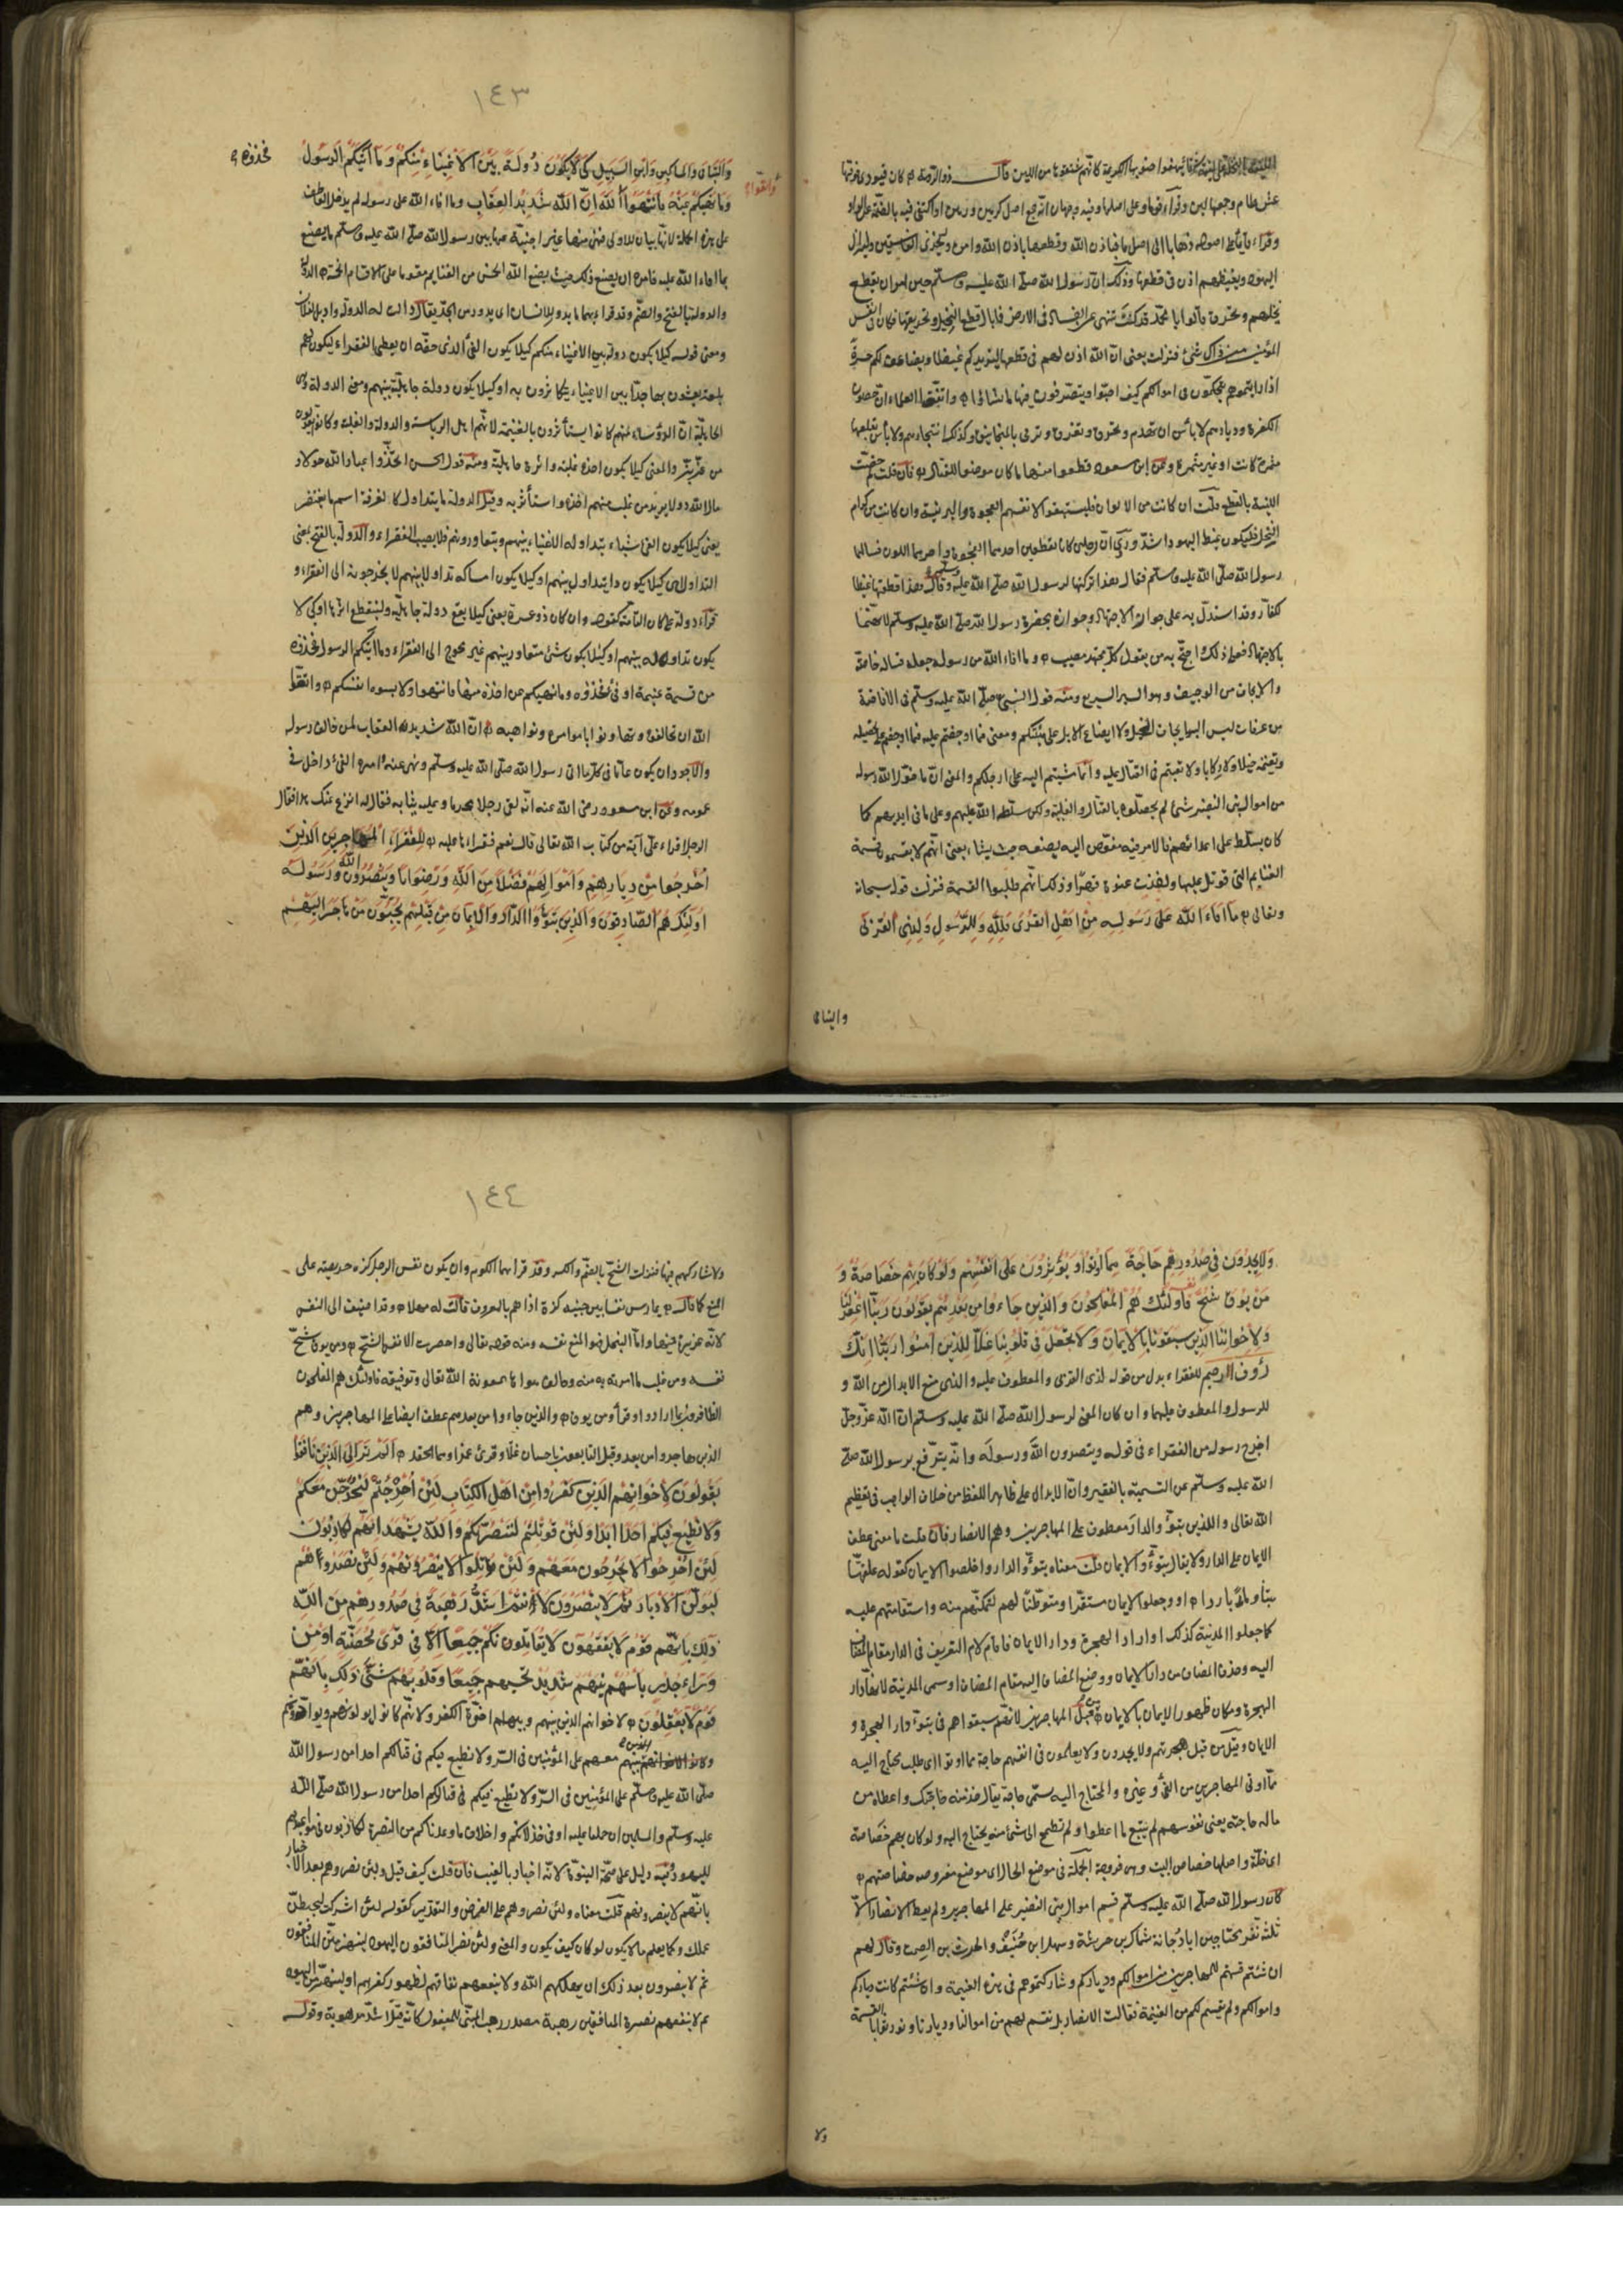 عش طام وجمعها لين وقراء قوما على اصلها وفيه وجهان انه جمع اصل كرهن ورهن او اكتفى فيه بالضمة عن الواو
اليهود ويغيظهم اذن فى قطعها وذلك ان رسول الله صلى الله عليه وسلم حين امر ان يقطع
نخلهم وتحرق قالوا يا محمد قد كنت تنهى عن الفساد فى الارض فما بال قطع النخيل وتحريقها فكان فى انفس
المؤمنين من ذلك شئ فنزلت يعنى ان الله اذن لهم فى قطعها ليزيدكم غيظا ويضاعف لكم حسرة
اذا رايتموهم يتحكمون فى اموالكم كيف احبوا ويتصرفون فيها ما شاؤا واتفق العلماء ان حصون
الكفرة وديارهم لا باس ان تهدم وتحرق وتغرق وترمى بالمجانيق وكذلك اشجارهم ولا باس بقلعها
مثمرة كانت او غير مثمرة وعن ابن مسعود قطعوا منها ما كان موضعا للقتال فان قلت لم خصت
اللينة بالقطع قلت ان كانت من الالوان فليستبقوا لانفسهم العجوة والبرنية وان كانت من كرام
النخل فليكون غيظ اليهود اشد وروى ان رجلين كانا يقطعان احدهما العجوة والاخر اللون فسالهما
رسول الله صلى الله عليه وسلم فقال هذا تركتها لرسول الله صلى الله عليه وسلم وقال هذا قطعتها غيظا
للكفار وقد استدل به على جواز الاجتهاد وجوازه بحضرة رسول الله صلى الله عليه وسلم لانهما
بالاجتهاد فعلا ذلك احتج به من يقول كل مجتهد مصيب وما افاء الله من رسوله جعله فيا له خاصة
والايجاف من الوجيف وهو السير السريع ومنه قول النبى صلى الله عليه وسلم فى الافاضة
من عرفات ليس البر بايجاف الخيل ولا ايضاع الابل على هينتكم ومعنى فما اوجفتم عليه فما اوجفتم على تحصيله
وتغنمه خيلا ولا ركابا ولا تعبتم فى القتال عليه وانما مشيتم اليه على ارجلكم والمعنى ان ما خول الله رسوله
من اموال بنى النضير شئ لم تحصلوه بالقتال والغلبة ولكن سلطه الله عليهم وعلى ما فى ايديهم كما
كان يسلط على اعدائهم فالامر فيه مفوض اليه يضعه حيث يشاء يعنى انه لا يقسم قسمة
الغنايم التى قوتل عليها واخذت عنوة قهرا وذلك انهم طلبوا القسمة فنزلت قوله سبحانه
وتعالى ما افاء الله على رسوله من اهل القرى فلله وللرسول ولذى القربى
واليتامى
١٤٣
واليتامى والمساكين وابن السبيل كى لا يكون دولة بين الاغنياء منكم وما اتيكم الرسول
فخذوه و
واتقوا
وما نهيكم عنه فانتهوا الله ان الله شديد العقاب وما افاء الله على رسوله لم يدخل العاطف
على هذه الجملة لانها بيان للاولى فهى منها غير اجنبية عنها بين رسول الله صلى الله عليه وسلم ما يصنع
بما افاء الله عليه فامره ان يضعه ذلك حيث يضع الله الخمس من الغنايم مقسوما على الاقسام الخمسة الدولة
والدولة بالفتح والضم وقد قراء بهما ما يدول للانسان اى يدور من الجد يقال دالت له الدولة واديل لفلان
ومعنى قوله كيلا يكون دولة بين الاغنياء منكم كيلا يكون الفئ الذى حقه ان يعطى الفقراء ليكون لهم
بلغة يعيشون بها جدا بين الاغنياء يتكاثرون به او كيلا يكون دولة جاهلية بينهم ومعنى الدولة
الجاهلية ان الرؤساء منهم كانوا يستأثرون بالغنيمة لانهم اهل الرياسة والدولة والغلبة وكانوا يقولون
من عز بز والمعنى كيلا يكون اخذه غلبة واثرة جاهلية ومنه قول الحسن اتخذوا عباد الله خولا و
مال الله دولا يريد من غلب منهم اخذه واستأثر به وقيل الدولة ما يتداول كالغرفة اسم ما يغترف
يعنى كيلا يكون الفئ شيأ يتداوله الاغنياء بينهم ويتعاورونه فلا يصيب الفقراء والدولة بالفتح بمعنى
التداول اى كيلا يكون ذا تداول بينهم او كيلا يكون امساكه تداولا بينهم لا يخرجونه الى الفقراء و
قراء دولة على كان التامة كقوله وان كان ذو عسرة يعنى كيلا يقع دولة جاهلية ولينقطع اثرها او كى لا
يكون تداول له بينهم او كيلا يكون شئ متعاور بينهم غير مخرج الى الفقراء وما اتيكم الرسول فخذوه
من قسمة غنيمة او فئ فخذوه وما نهيكم عن اخذه منها فانتهوا ولا تتبعوه انفسكم واتقوا
الله ان تخالفوه وتتهاونوا باوامره ونواهيه ان الله شديد العقاب لمن خالف رسوله
والاجود ان يكون عاما فى كل ما اتى رسول الله صلى الله عليه وسلم ونهى عنه وامر الفئ داخل فى
عمومه وعن ابن مسعود رضى الله عنه انه لقى رجلا محرما وعليه ثيابه فقال له انزع عنك هذا فقال
الرجل اقراء على آية من كتاب الله تعالى قال نعم فقراءها عليه للفقراء المهاجرين الذين
اخرجوا من ديارهم واموالهم يبتغون فضلا من الله ورضوانا وينصرون الله ورسوله
اولئك هم الصادقون والذين تبوأوا الدار والايمان من قبلهم يحبون من هاجر اليهم
ولا يجدون فى صدورهم حاجة مما اوتوا ويؤثرون على انفسهم ولو كان بهم خصاصة و
من يوق شح نفسه فاولئك هم المفلحون والذين جاءوا من بعدهم يقولون ربنا اغفر لنا
ولاخواننا الذين سبقونا بالايمان ولا تجعل فى قلوبنا غلا للذين آمنوا ربنا انك
رؤف الرحيم للفقراء بدل من قوله لذى القربى والمعطوف عليه والذى منع الابدال من الله و
للرسول والمعطوف عليهما وان كان المعنى لرسول الله صلى الله عليه وسلم ان الله عز وجل
اخرج رسوله من الفقراء فى قوله وينصرون الله ورسوله وانه يترفع برسول الله صلى
الله عليه وسلم عن التسمية بالفقير وان الابدال على ظاهر اللفظ من خلاف الواجب فى تعظيم
الله تعالى والذين تبوؤ والدار معطوف على المهاجرين وهم الانصار فان قلت ما معنى عطف
الايمان على الدار ولا يقال تبوؤ والايمان قلت معناه تبوؤ والدار واخلصوا الايمان كقوله علفتها
تبنا وماء باردا او وجعلوا الايمان مستقرا ومتوطنا لهم لتمكنهم منه واستقامتهم عليه
كما جعلوا المدينة كذلك او اراد دار الهجرة ودار الايمان فاقام لام التعريف فى الدار مقام المضاف
اليه وحذف المضاف من دار الايمان ووضع المضاف اليه مقام المضاف او سمى المدينة لانها دار
الهجرة ومكان ظهور الايمان بالايمان من قبل المهاجرين لانهم سبقوهم فى تبوؤ دار الهجرة و
الايمان وقيل من قبل هجرتهم ولا يجدون ولا يعلمون فى انفسهم حاجة مما اوتوا اى طلب محتاج اليه
مما اوتى المهاجرين من الفئ وغيره والمحتاج اليه يسمى حاجة يقال خذ منه حاجتك واعطاه من
ماله حاجته يعنى نفوسهم لم يتبع ما اعطوا ولم تطمح الى شئ منه يحتاج اليه ولو كان بهم خصاصة
اى خلة واصلها خصاص البيت وهى فروجه الجملة فى موضع الحال اى مفروضة خصاصتهم
كان رسول الله صلى الله عليه وسلم قسم اموال بنى النضير على المهاجرين ولم يعط الانصار الا
ثلثة نفر محتاجين ابا دجانة سماك بن خرشة وسهل ابن حنيف والحرث بن الصمة وقال لهم
ان شئتم قسمتم للمهاجرين من اموالكم ودياركم وشاركتموهم فى هذه الغنيمة وان شئتم كانت دياركم
واموالكم ولم يقسم لكم من الغنيمة فقالت الانصار بل نقسم لهم من اموالنا وديارنا ونؤثرهم بالقسمة
ولا
١٤٤
ولا نشاركهم فيها فنزلت الشح بالضم والكسر وقد قرأ بهما اللوم وان يكون نفس الرجل كزة حريصة على
المنع كما قال يمارس نفسا بين جنبيه كزة اذا هم بالمعروف قالت له مهلا وقد اضيف الى النفس
لانه غريزة فيها واما البخل فهو المنع نفسه ومنه قوله تعالى واحضرت الانفس الشح ومن يوق شح
نفسه ومن غلب ما امرته به منه وخالف هواها بمعونة الله تعالى وتوفيقه فاولئك هم المفلحون
الظافرون بما ارادوا وقرأ ومن يوق والذين جاءوا من بعدهم عطف ايضا على المهاجرين وهم
الذين هاجروا من بعد وقيل التابعون باحسان غلا وقرئ غمرا وهما الحقد الم تر الى الذين نافقوا
يقولون لاخوانهم الذين كفروا من اهل الكتاب لئن اخرجتم لنخرجن معكم
ولا نطيع فيكم احدا ابدا ولئن قوتلتم لننصرنكم والله يشهد انهم لكاذبون
لئن اخرجوا لا يخرجون معهم ولئن قوتلوا لا ينصرونهم ولئن نصروهم
ليولن الادبار ثم لا ينصرون لأنتم اشد رهبة فى صدورهم من الله
ذلك بانهم قوم لا يفقهون لا يقاتلونكم جميعا الا فى قرى محصنة او من
وراء جدر بأسهم بينهم شديد تحسبهم جميعا وقلوبهم شتى ذلك بانهم
قوم لا يعقلون لاخوانهم الذين بينهم وبينهم اخوة الكفر ولانهم كانوا يوالونهم ويواخونهم
وكانوا معهم على المؤمنين فى السر ولا نطيع فيكم فى قتالكم احدا من رسول الله
صلى الله عليه وسلم على المؤمنين فى السر ولا نطيع فيكم فى قتالكم احدا من رسول الله صلى الله
عليه وسلم والمسلمين ان حملنا عليه او فى خذلانكم واخلاف ما وعدناكم من النصرة لكاذبون فى مواعيدهم
لليهود وفيه دليل على صحة النبوة لانه اخبار بالغيب فان قلت كيف قيل ولئن نصروهم بعد الاخبار
بانهم لا ينصرونهم قلت معناه ولئن نصروهم على الفرض والتقدير كقوله لئن اشركت ليحبطن
عملك وكما يعلم ما لا يكون لو كان كيف يكون والمعنى ولئن نصر المنافقون اليهود لينهزمن المنافقون
ثم لا ينصرون بعد ذلك ان يهلكهم الله ولا ينفعهم نفاقهم لظهور كفرهم او لينهزمن اليهود
ثم لا ينفعهم نصرة المنافقين رهبة مصدر رهب المبنى للمفعول كانه قيل اشد مرهوبية وقوله